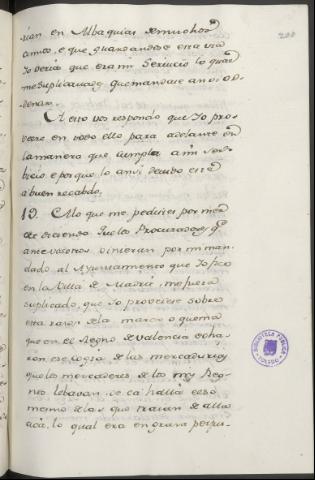 200
rian en Albaquias de muchos
años, e que guardandose esta via
Yo veria que era mi servicio lo qual
me suplicavades que mandase ansi or-
denar.
A esto vos respondo que Yo pro-
veere en todo ello para adelante en
la manera que cumpla a mi Ser-
bicio e porque lo ansi devido esté
a buen recabdo.
19. A lo que me pedistes por mer-
ced diciendo que los Procuradores q.e
ante vosotros vinieran por mi man-
dado al Ayuntamiento que Yo fice
en la Villa de Madrid me fuera
suplicado, que Yo proveiese sobre
esta razon de la marca o quema
que en el Regno de Valencia echa-
ron en cosas de las mercadurias
que los mercaderes de los mis Reg-
nos lebavan de cá hallá e eso
mismo de las que traian de allá
acá, lo qual era en grand perjui-
BIBLIOTECA PUBLICA
TOLEDO